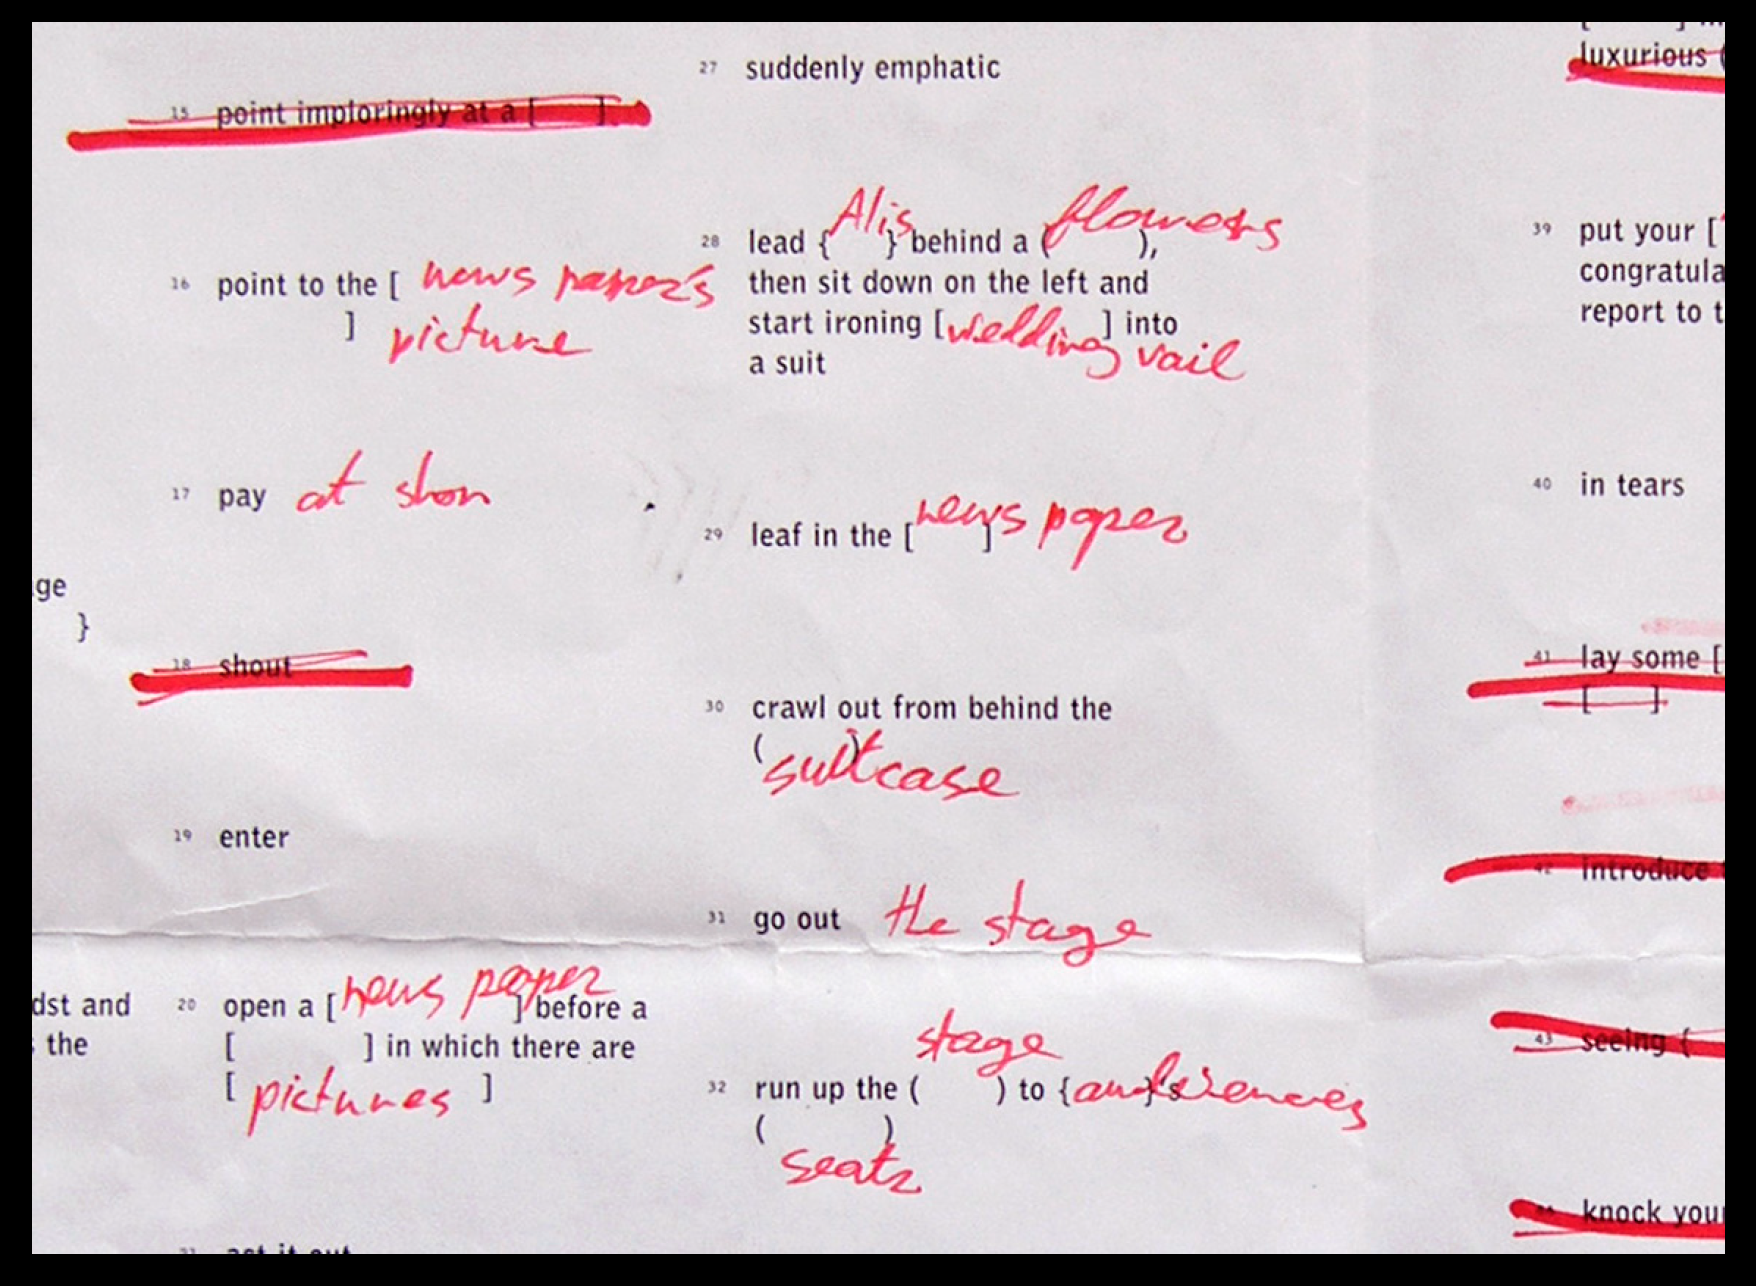 ge
}
dst and
the
15 point imploringly at a [ ]
16 point to the [ news paper's
] picture
17 pay at shon
18 shout
19 enter
20 open a [ news paper ] before a
[ ] in which there are
[ pictures ]
21 act it out
27 suddenly emphatic
28 lead { Alis } behind a ( flowers ),
then sit down on the left and
start ironing [ wedding vail ] into
a suit
29 leaf in the [ news paper ]
30 crawl out from behind the
( suitcase )
31 go out the stage
32 run up the ( stage ) to { audiences }'s
( seats )
luxurious (
39 put your [
congratula
report to t
40 in tears
41 lay some [
[ ]
42 introduce
43 seeing {
knock your